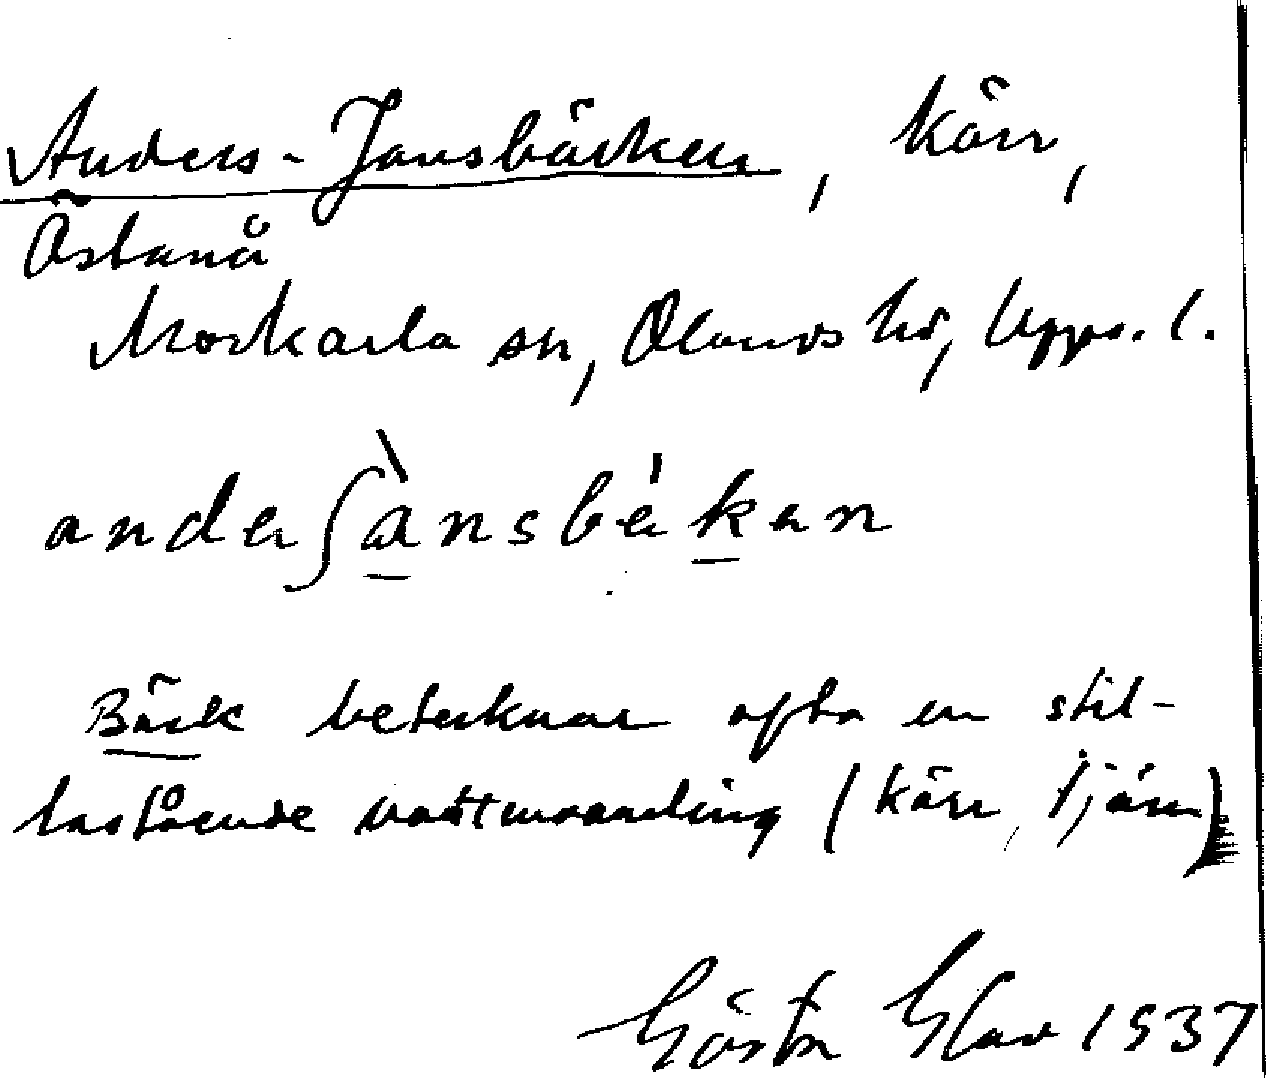 Anders-Jansbäcken, kärr,
Östanå
Morkarla sn, Olands hd, Upps. l.
andeʃànsbékan
Bäck betecknar ofta en stil-
lastående vattensamling (kärr, tjärn)
Gösta
1937